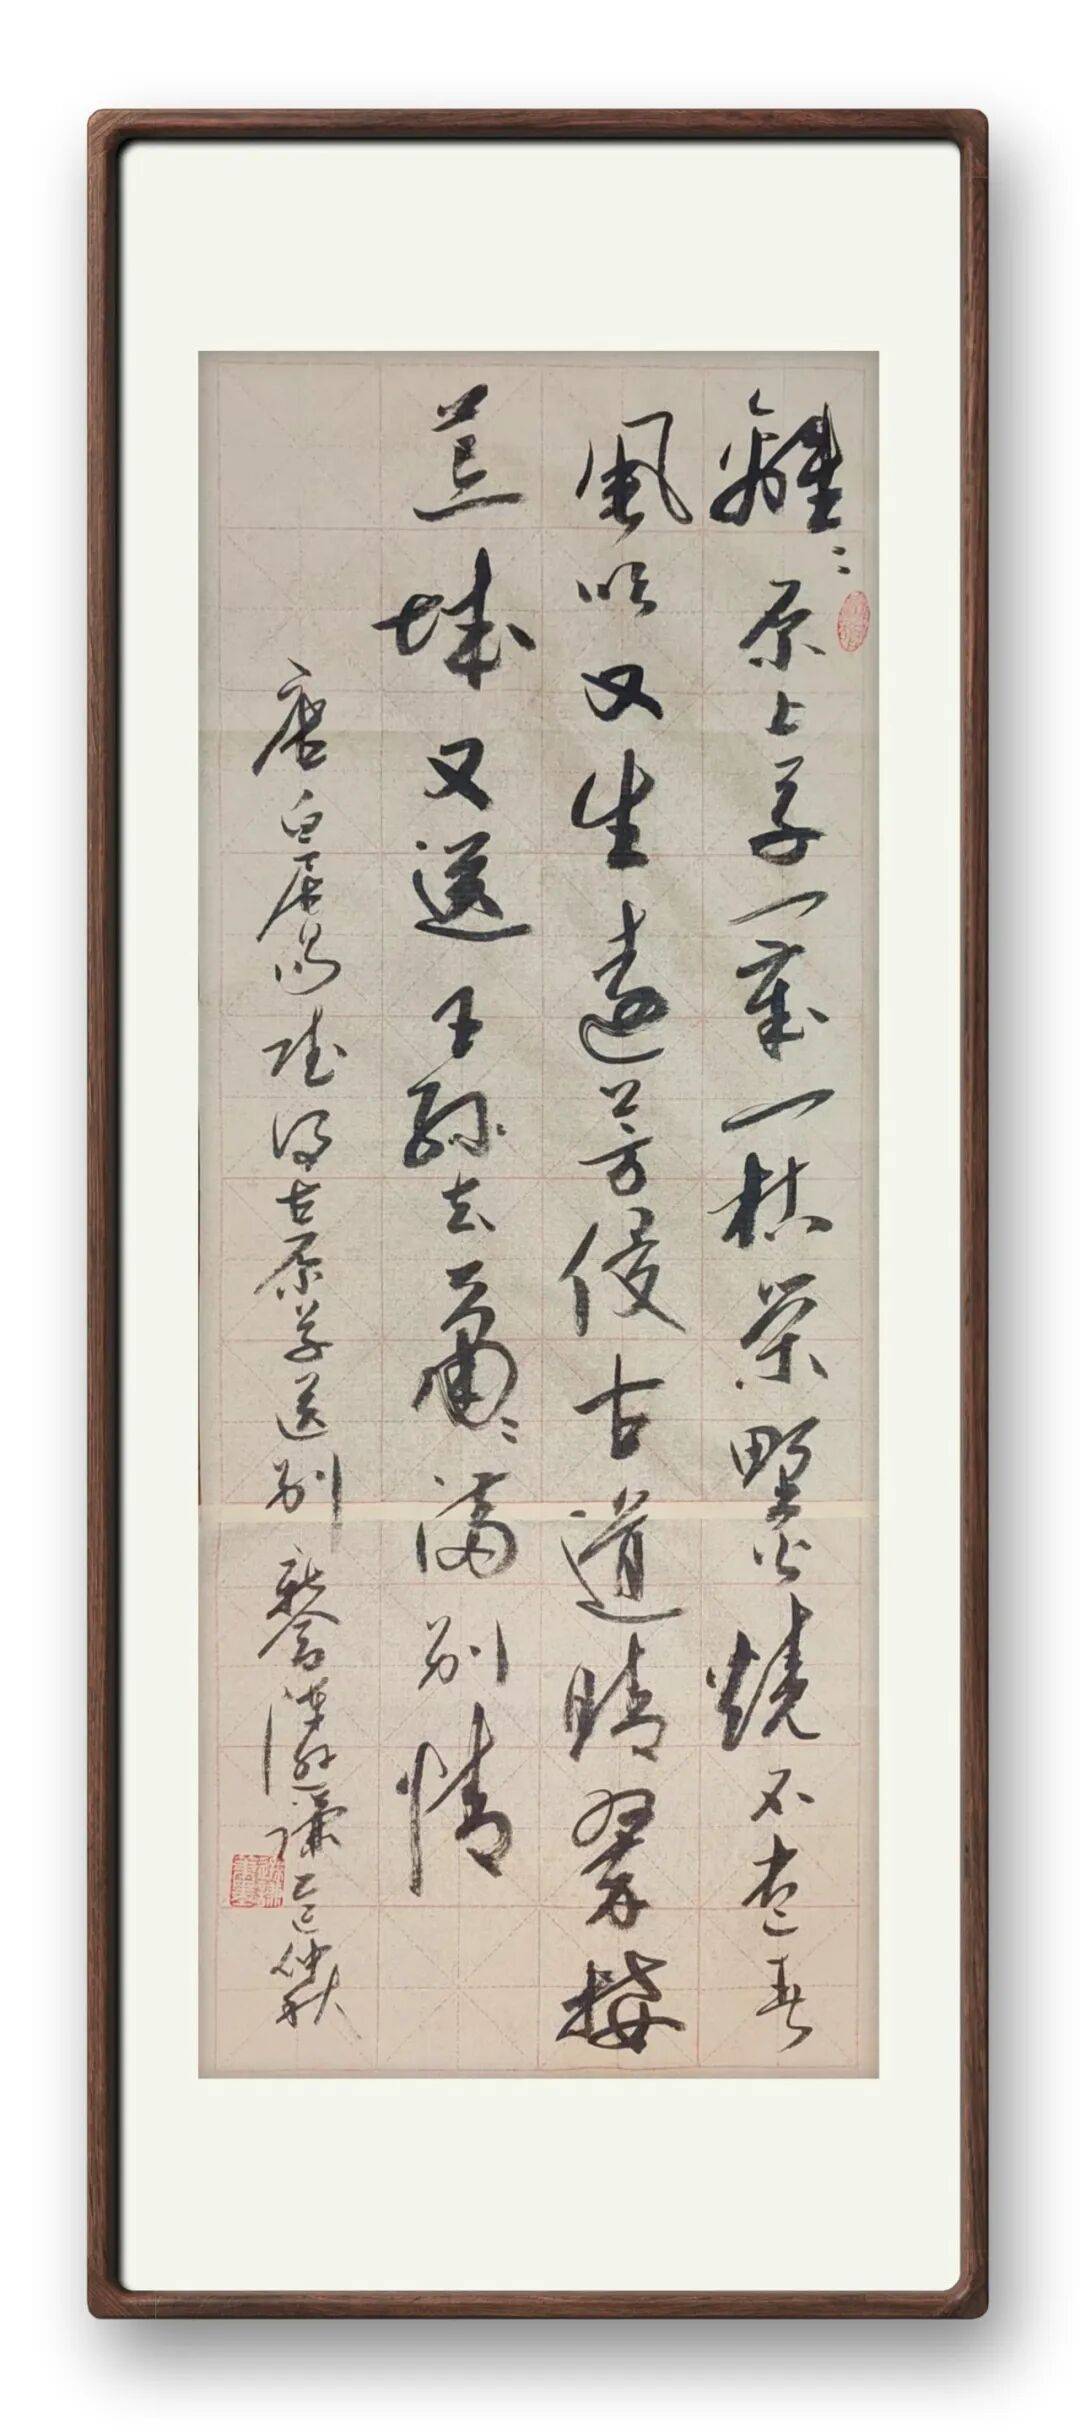 離〻原上草一歲一枯榮野火燒不盡春
風吹又生遠芳侵古道晴翠接
荒城又送王孫去滿別情
唐白居易賦得古原草送別 乙巳仲秋